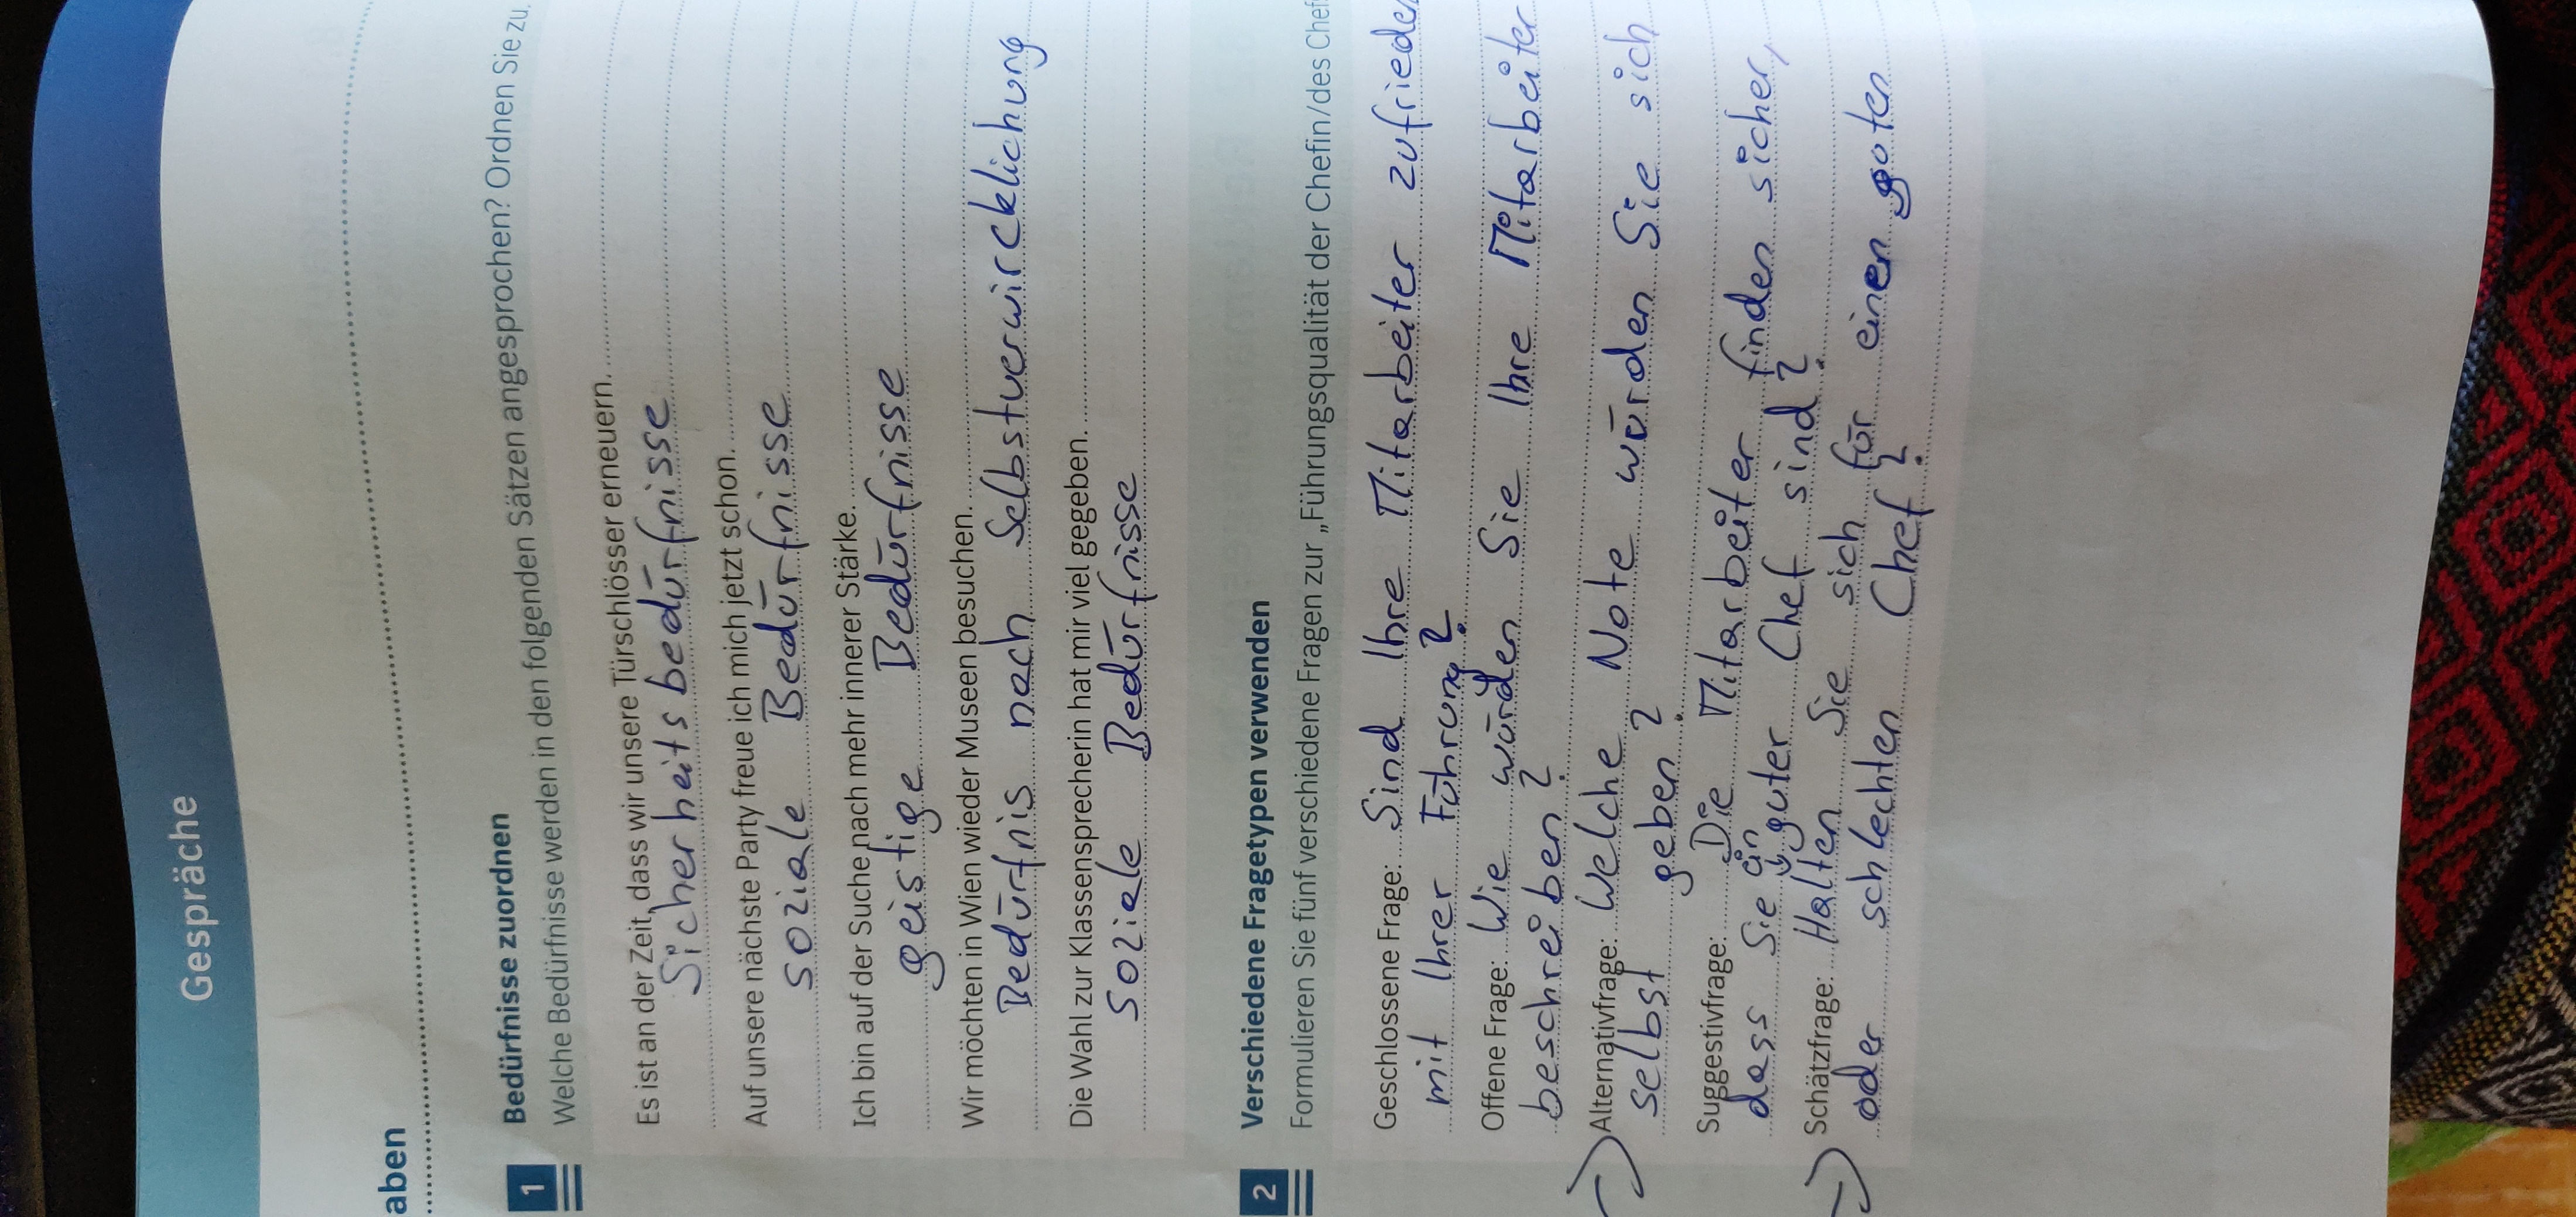 Gespräche
aben
1 Bedürfnisse zuordnen
Welche Bedürfnisse werden in den folgenden Sätzen angesprochen? Ordnen Sie zu.
Es ist an der Zeit, dass wir unsere Türschlösser erneuern.
Sicherheitsbedürfnisse
Auf unsere nächste Party freue ich mich jetzt schon.
soziale Bedürfnisse
Ich bin auf der Suche nach mehr innerer Stärke.
geistige Bedürfnisse
Wir möchten in Wien wieder Museen besuchen.
Bedürfnis nach Selbstverwircklichung
Die Wahl zur Klassensprecherin hat mir viel gegeben.
soziale Bedürfnisse
2 Verschiedene Fragetypen verwenden
Formulieren Sie fünf verschiedene Fragen zur „Führungsqualität der Chefin/des Chef
Geschlossene Frage: Sind Ihre Mitarbeiter zufrieden
mit Ihrer Führung?
Offene Frage: Wie würden Sie Ihre Mitarbeiter
beschreiben?
Alternativfrage: Welche Note würden Sie sich
selbst geben?
Suggestivfrage: Die Mitarbeiter finden sicher,
dass Sie ein guter Chef sind?
Schätzfrage: Halten Sie sich für einen guten
oder schlechten Chef?